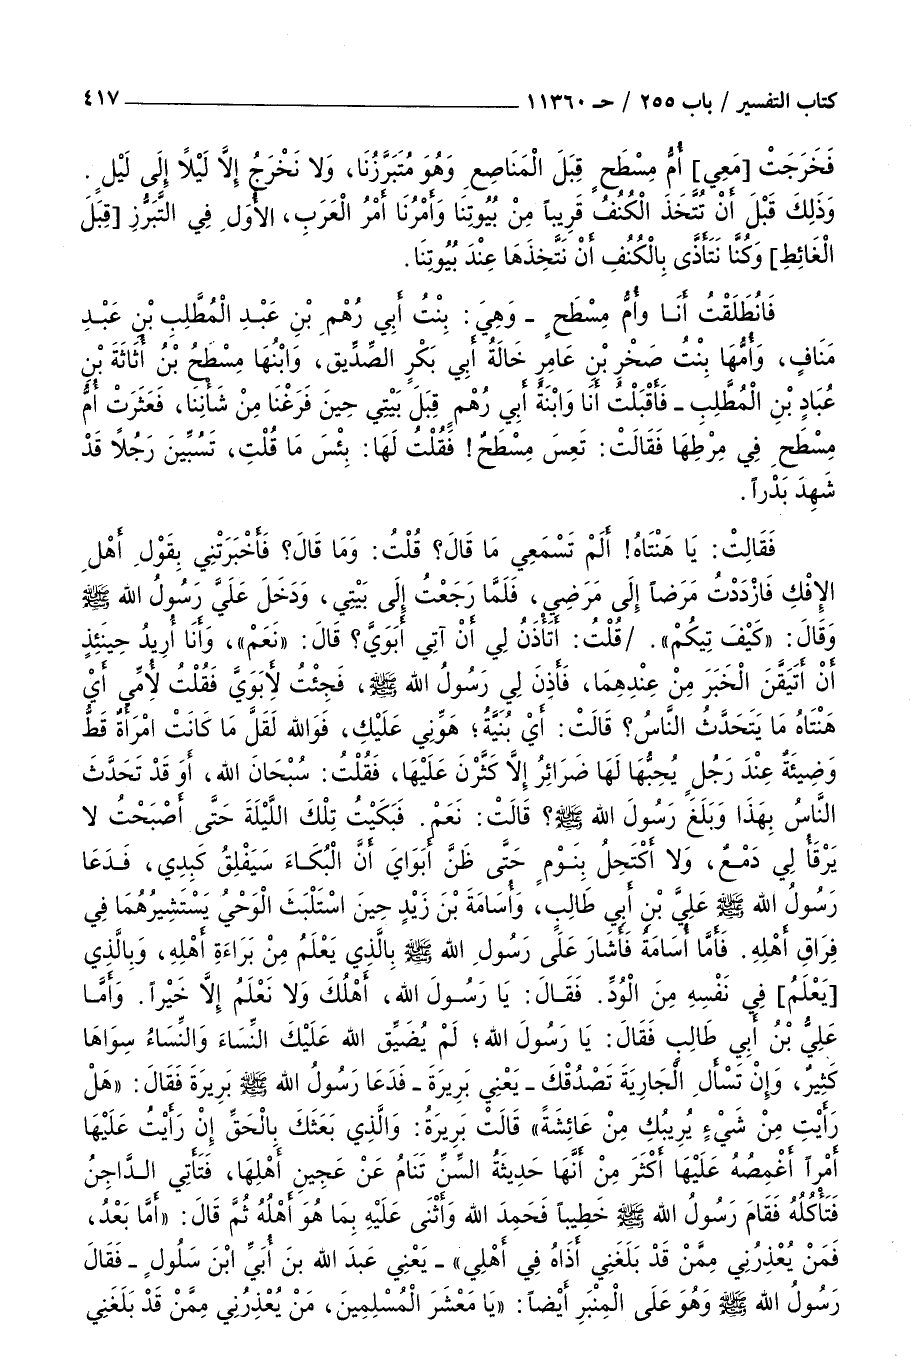 كتاب التفسير / باب ٢٥٥ / حـ ١١٣٦٠ ــــــــــ ٤١٧
فَخَرَجَتْ [مَعِي] أُمُّ مِسْطَحٍ قِبَلَ الْمَنَاصِعِ وَهُوَ مُتَبَرَّزُنَا، وَلا نَخْرَجُ إِلَّا لَيْلًا إِلَى لَيْلٍ.
وَذَلِكَ قَبْلَ أَنْ تُتَّخَذَ الْكُنُفُ قَرِيباً مِنْ بُيُوتِنَا وَأَمْرُنَا أَمْرُ الْعَرَبِ، الأُوَلِ فِي التَّبَرُّزِ [قِبَلَ
الْغَائِطِ] وَكُنَّا نَتَأَذَّى بِالْكُنُفِ أَنْ نَتَّخِذَهَا عِنْدَ بُيُوتِنَا.
فَانْطَلَقْتُ أَنَـا وأُمُّ مِسْطَحٍ ـ وَهِيَ: بِنْتُ أَبِي رُهْمِ بْنِ عَبْـدِ الْمُطَّلِبِ بْنِ عَبْـدِ
مَنَافٍ، وَأُمُّهَا بِنْتُ صَخْرِ بْنِ عَامِرٍ خَالَةُ أَبِي بَكْرٍ الصِّدِّيقِ، وَابْنُهَا مِسْطَحُ بْنُ أَثَاثَةَ بْنِ
عُبَادِ بْنِ الْمُطَّلِبِ ـ فَأَقْبَلْتُ أَنَا وَابْنَةُ أَبِي رُهْمٍ قِبَلَ بَيْتِي حِينَ فَرَغْنَا مِنْ شَأْنِنَا، فَعَثَرَتْ أُمُّ
مِسْطَحٍ فِي مِرْطِهَا فَقَالَتْ: تَعِسَ مِسْطَحٌ! فَقُلْتُ لَهَا: بِئْسَ مَا قُلْتِ، تَسُبِّينَ رَجُلاً قَدْ
شَهِدَ بَدْراً.
فَقَالِتْ: يَا هَنْتَاهُ! أَلَمْ تَسْمَعِي مَا قَالَ؟ قُلْتُ: وَمَا قَالَ؟ فَأَخْبَرَتْنِي بِقَوْلِ أَهْلِ
الإِفْكِ فَازْدَدْتُ مَرَضاً إِلَى مَرَضِي، فَلَمَّا رَجَعْتُ إِلَى بَيْتِي، وَدَخَلَ عَلَيَّ رَسُولُ الله ﷺ
وَقَالَ: «كَيْفَ تِيكُمْ». /قُلْتُ: أَتَأْذَنُ لِي أَنْ آتِي أَبَوَيَّ؟ قَالَ: «نَعَمْ»، وَأَنَا أُرِيدُ حِينَئِذٍ
أَنْ أَتَيَقَّنَ الْخَبَرَ مِنْ عِنْدِهِمَا، فَأَذِنَ لِي رَسُولُ الله ﷺ، فَجِئْتُ لأَبَوَيَّ فَقُلْتُ لأُمِّي أَيْ
هَنْتَاهُ مَا يَتَحَدَّثُ النَّاسُ؟ قَالَتْ: أَيْ بُنَيَّةُ؛ هَوِّنِي عَلَيْكِ، فَوَالله لَقَلَّ مَا كَانَتْ امْرَأَةٌ قَطُّ
وَضِيئَةً عِنْدَ رَجُلٍ يُحِبُّهَا لَهَا ضَرَائِرُ إِلَّا كَثَّرْنَ عَلَيْهَا، فَقُلْتُ: سُبْحَانَ الله، أَوَ قَدْ تَحَدَّثَ
النَّاسُ بِهَذَا وَبَلَغَ رَسُولَ الله ﷺ؟ قَالَتْ: نَعَمْ. فَبَكَيْتُ تِلْكَ اللَّيْلَةَ حَتَّى أَصْبَحْتُ لا
يَرْقَأُ لِي دَمْـعٌ، وَلا أَكْتَحِلُ بِنَـوْمٍ حَتَّى ظَنَّ أَبَوَايَ أَنَّ الْبُكَـاءَ سَيَفْلِقُ كَبِدِي، فَـدَعَا
رَسُولُ الله ﷺ عَلِيَّ بْنِ أَبِي طَالِبٍ، وَأُسَامَةَ بْنَ زَيْدٍ حِينَ اسْتَلْبَثَ الْوَحْيُ يَسْتَشِيرُهُمَا فِي
فِرَاقِ أَهْلِهِ. فَأَمَّا أُسَامَةُ فَأَشَارَ عَلَى رَسُولِ الله ﷺ بِالَّذِي يَعْلَمُ مِنْ بَرَاءَةِ أَهْلِهِ، وَبِالَّذِي
[يَعْلَمُ] فِي نَفْسِهِ مِنَ الْوُدِّ. فَقَـالَ: يَا رَسُـولَ الله، أَهْلُكَ وَلا نَعْلَمُ إِلَّا خَيْراً. وَأَمَّـا
عَلِيُّ بْنُ أَبِي طَالِبٍ فَقَالَ: يَا رَسُولَ الله؛ لَمْ يُضَيِّقِ الله عَلَيْكَ النِّسَاءَ وَالنِّسَاءُ سِوَاهَا
كَثِيرٌ، وَإِنْ تَسْأَلِ الْجَارِيَةَ تَصْدُقْكَ ـ يَعْنِي بَرِيرَةَ ـ فَدَعَا رَسُولُ الله ﷺ بَرِيرَةَ فَقَالَ: «هَلْ
رَأَيْتِ مِنْ شَيْءٍ يُرِيبُكِ مِنْ عَائِشَةَ» قَالَتْ بَرِيرَةُ: وَالَّذِي بَعَثَكَ بِالْحَقِّ إِنْ رَأَيْتُ عَلَيْهَا
أَمْراً أَغْمِصُهُ عَلَيْهَا أَكْثَرَ مِنْ أَنَّهَا حَدِيثَةُ السِّنِّ تَنَامُ عَنْ عَجِينِ أَهْلِهَا، فَتَأْتِي الـدَّاجِنُ
فَتَأْكُلُهُ فَقَامَ رَسُولُ الله ﷺ خَطِيباً فَحَمِدَ الله وَأَثْنَى عَلَيْهِ بِمَا هُوَ أَهْلُهُ ثُمَّ قَالَ: «أَمَّا بَعْدُ،
فَمَنْ يُعْذِرُنِي مِمَّنْ قَدْ بَلَغَنِي أَذَاهُ فِي أَهْلِي» ـ يَعْنِي عَبدَ الله بنَ أُبَيِّ ابْنَ سَلُولٍ ـ فَقَالَ
رَسُولُ الله ﷺ وَهُوَ عَلَى الْمِنْبَرِ أَيْضاً: «يَا مَعْشَرَ الْمُسْلِمِينَ، مَنْ يُعْذِرُنِي مِمَّنْ قَدْ بَلَغَنِي